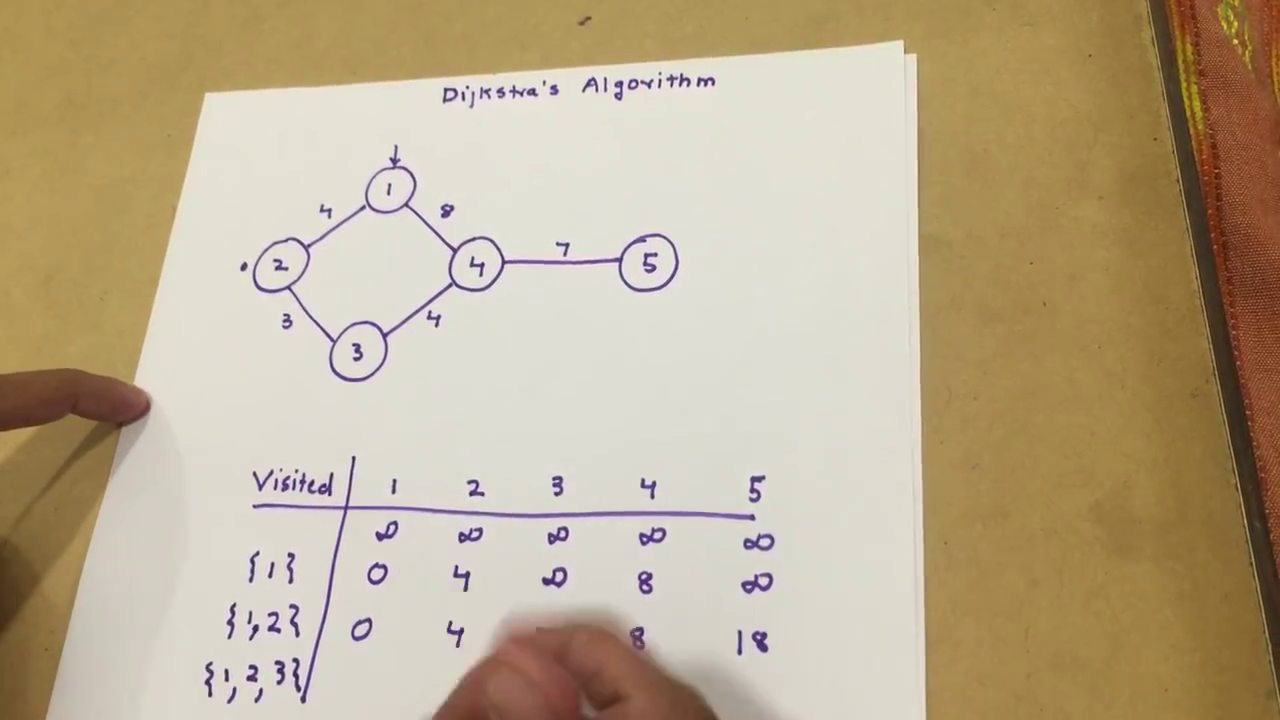 Dijkstra's Algorithm
1
4 8
2 4 7 5
3 4
3
Visited 1 2 3 4 5
∞ ∞ ∞ ∞ ∞
{1} 0 4 ∞ 8 ∞
{1,2} 0 4 8 18
{1,2,3}